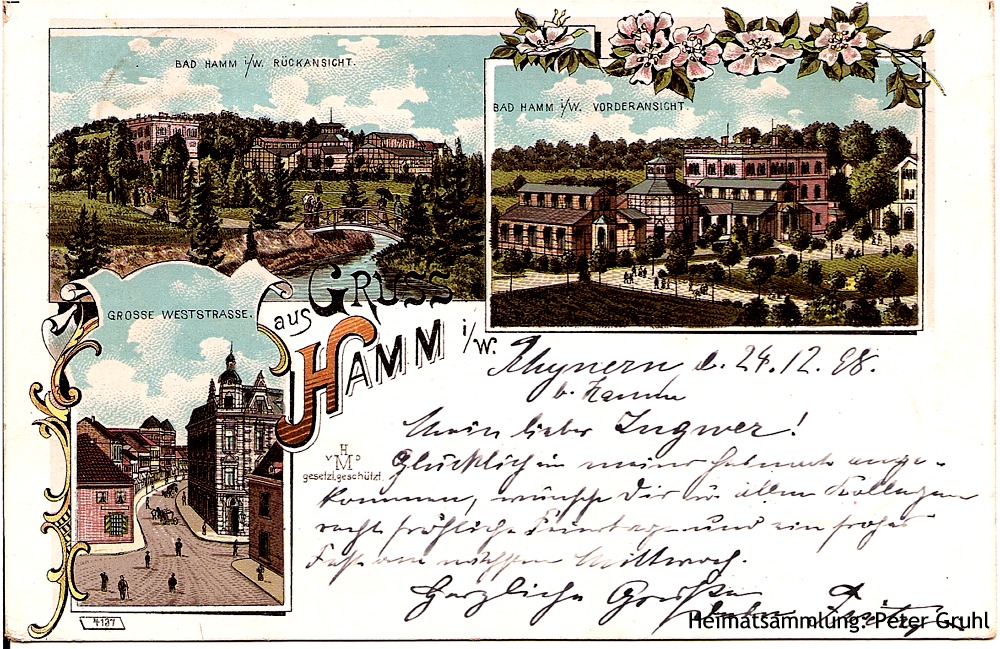 BAD HAMM i/W. RÜCKANSICHT.
BAD HAMM i/W. VORDERANSICHT.
GROSSE WESTSTRASSE.
GRUSS
aus
HAMM i/W.
Rhynern d. 24.12.98.
b. Hamm
Mein lieber Ingwer!
Glücklich in meiner Heimath ange-
kommen, wünsche Dir u. allen Kollegen
recht fröhliche Feiertage und ein frohes
Fest am nächsten Mittwoch.
Herzliche Grüße
Fritz
H
V M D
gesetzl. geschützt.
4137
Heimatsammlung: Peter Gruhl